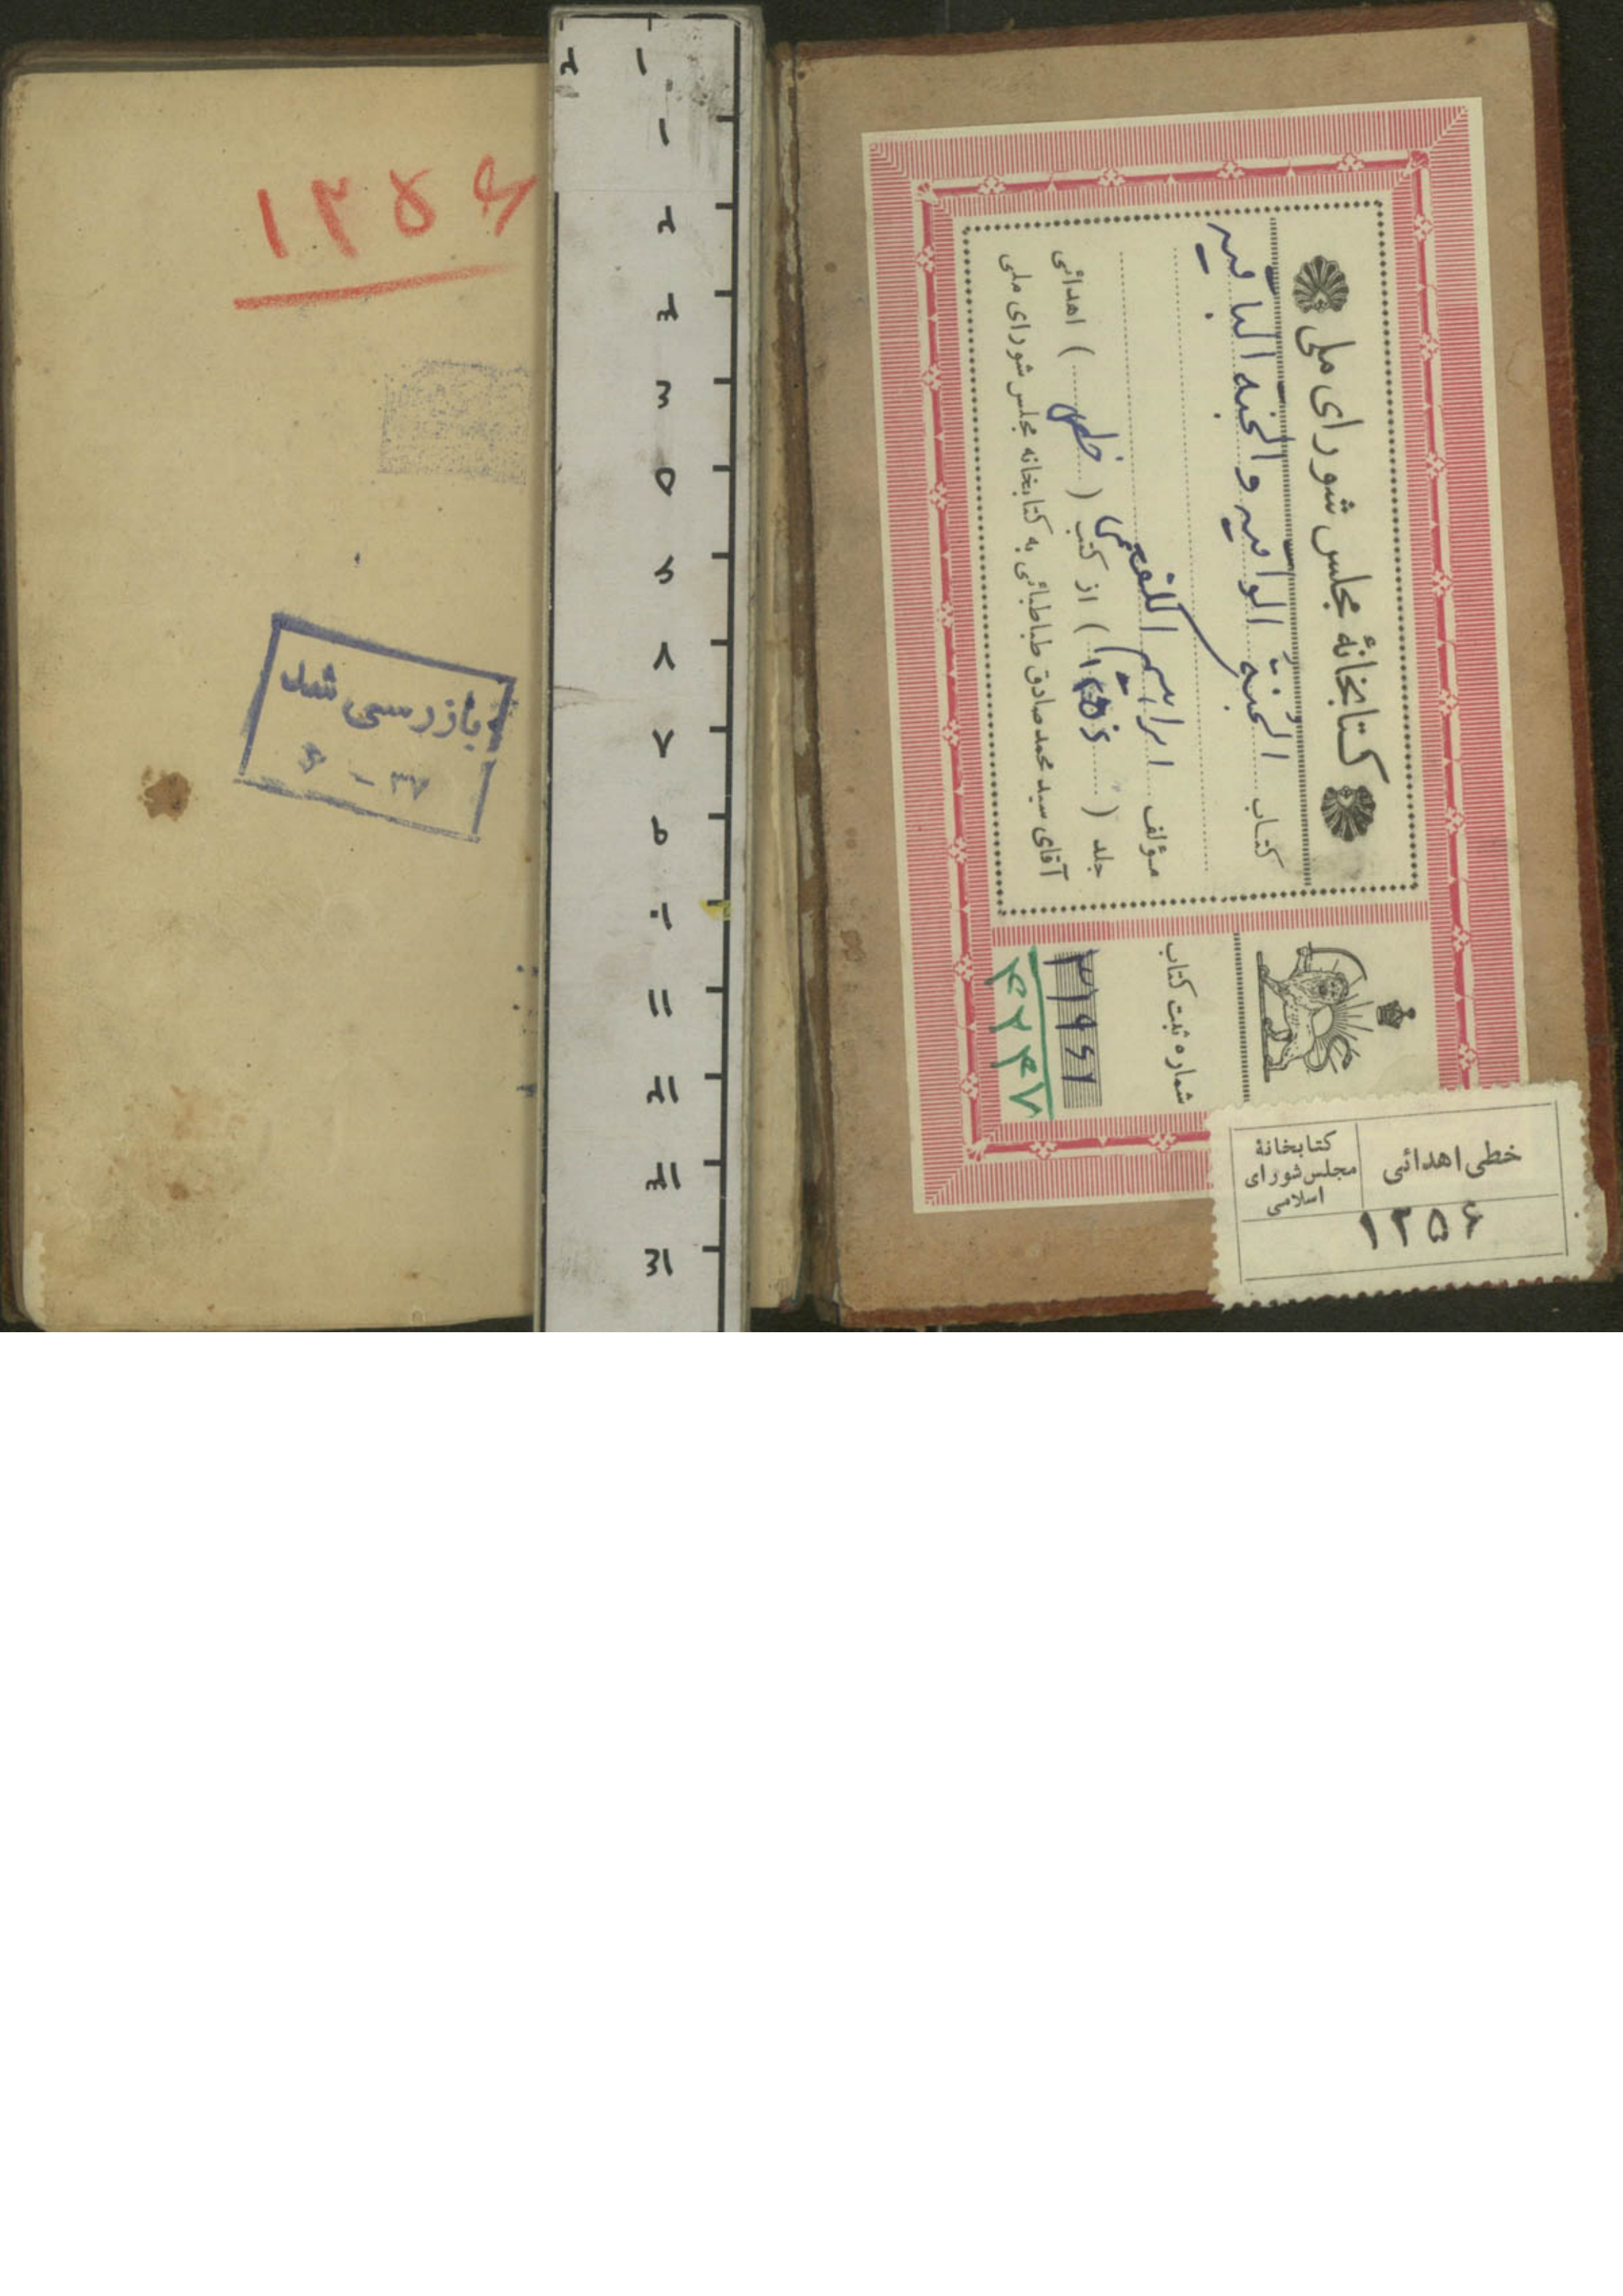 کتابخانهٔ مجلس شورای ملی
کتاب الجُنّة الواقیه والجنه الباقیه
مؤلف ابراهیم الکفعمی
جلد ( ) از کتب ( خطی ) اهدائی
آقای سید محمد صادق طباطبائی به کتابخانه مجلس شورای ملی
شماره ثبت کتاب
۳۱۹۶۲
۴۲۴۷
خطی اهدائی
کتابخانهٔ
مجلس شورای
اسلامی
۱۲۵۶
۱۲۵۶
بازرسی شد
۶ - ۳۷
۲ ۱
۱
۲
۳
۴
۵
۶
۸
۷
۹
۱۰
۱۱
۱۲
۱۳
۱۴